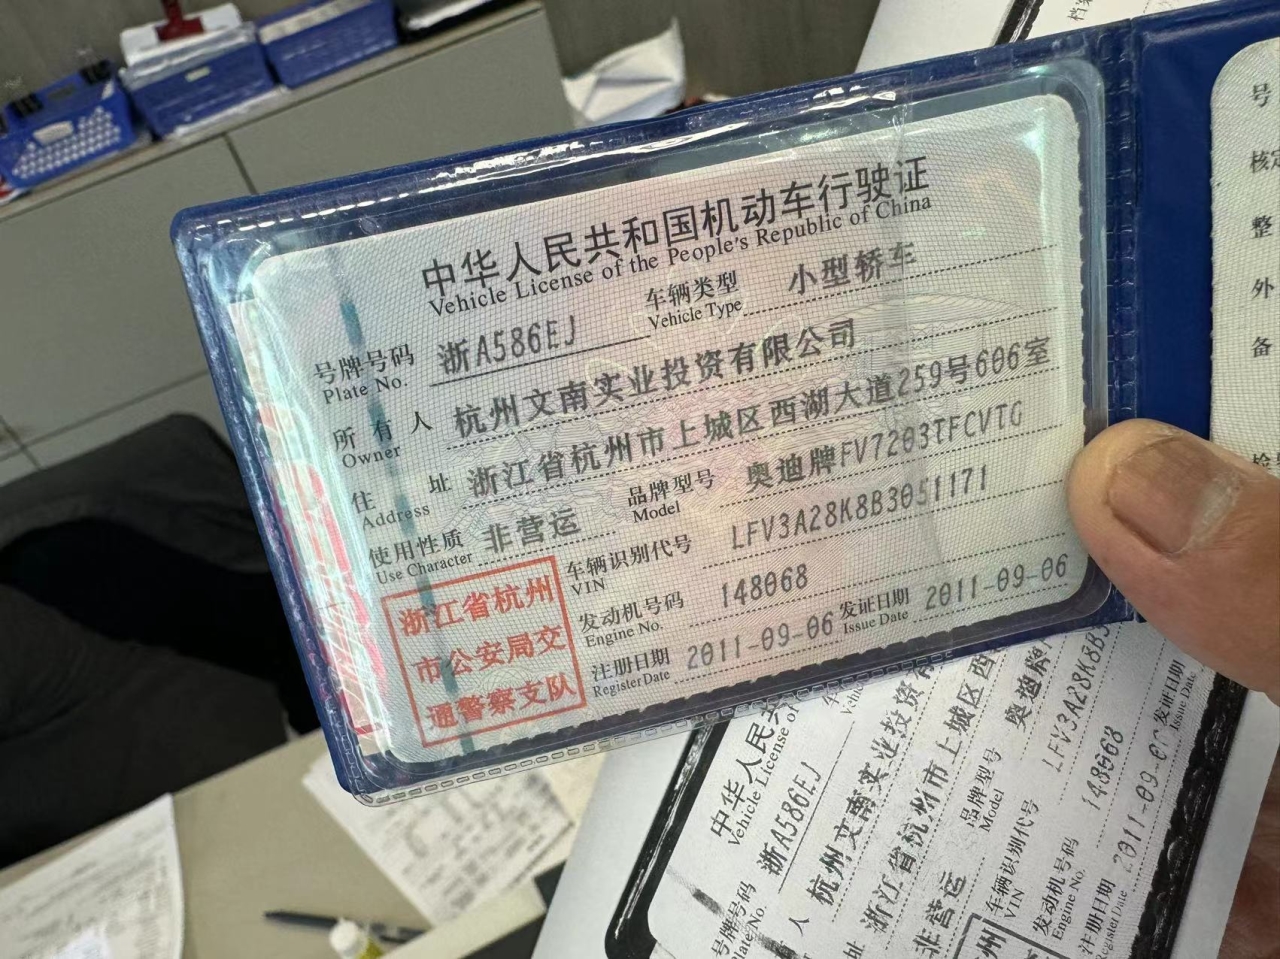 中华人民共和国机动车行驶证
Vehicle License of the People's Republic of China
号牌号码 浙A586EJ 车辆类型 小型轿车
Plate No. Vehicle Type
所有人 杭州文南实业投资有限公司
Owner
住址 浙江省杭州市上城区西湖大道259号606室
Address
使用性质 非营运 品牌型号 奥迪牌FV7203TFCVTG
Use Character Model
浙江省杭州
市公安局交
通警察支队
车辆识别代号 LFV3A28K8B3051171
VIN
发动机号码 148068
Engine No.
注册日期 2011-09-06 发证日期 2011-09-06
Register Date Issue Date
号
核定
整
外
备
档案
中华人民共
Vehicle License of
号牌号码 浙A586EJ
Plate No.
人 杭州文南实业投资有
址 浙江省杭州市上城区西
非营运 品牌型号 奥迪牌
Model
车辆识别代号 LFV3A28K8B3
VIN
发动机号码 148068
Engine No.
注册日期 2011-09-0 发证日期
Register Date Issue Date
州